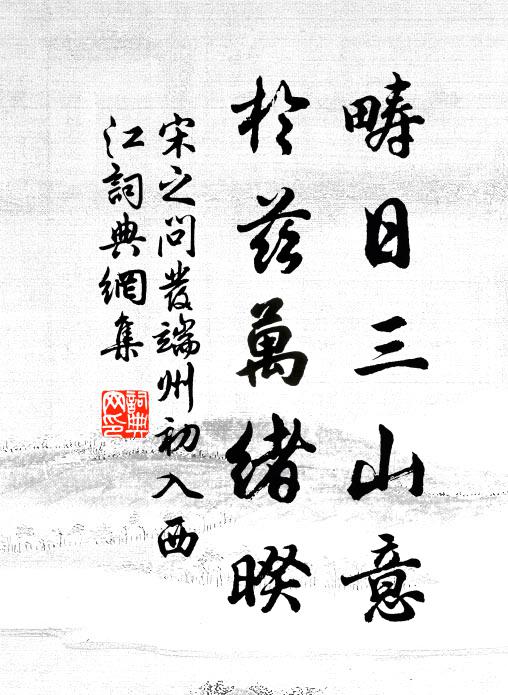 疇日三山意
於茲萬緒暌
宋之問發端州初入西
江詞典網集
詞典
网印